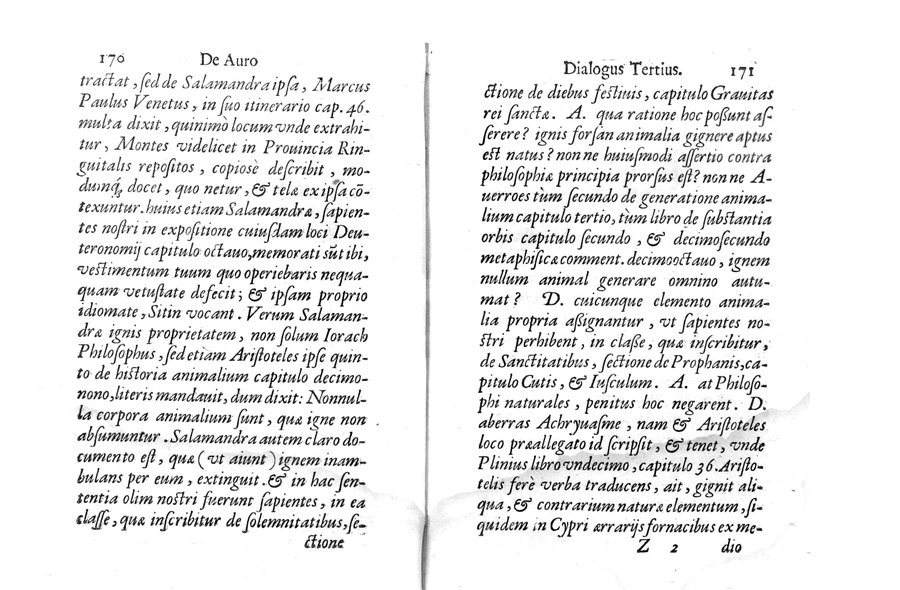 170 De Auro
tractat, sed de Salamandra ipsa, Marcus
Paulus Venetus, in suo itinerario cap. 46.
multa dixit, quinimò locum vnde extrahi-
tur, Montes videlicet in Prouincia Rin-
guitalis repositos, copiosè describit, mo-
dumq́; docet, quo netur, & telæ ex ipsa cō-
texuntur. huius etiam Salamandræ, sapien-
tes nostri in expositione cuiusdam loci Deu-
teronomij capitulo octauo, memorati sūt ibi,
vestimentum tuum quo operiebaris nequa-
quam vetustate defecit; & ipsam proprio
idiomate, Sitin vocant. Verum Salaman-
dræ ignis proprietatem, non solum Iorach
Philosophus, sed etiam Aristoteles ipse quin-
to de historia animalium capitulo decimo-
nono, literis mandauit, dum dixit: Nonnul-
la corpora animalium sunt, quæ igne non
absumuntur. Salamandra autem claro do-
cumento est, quæ (vt aiunt) ignem inam-
bulans per eum, extinguit. & in hac sen-
tentia olim nostri fuerunt sapientes, in ea
classe, quæ inscribitur de solemnitatibus, se-
ctione
Dialogus Tertius. 171
ctione de diebus festiuis, capitulo Grauitas
rei sanctæ. A. qua ratione hoc possunt as-
serere? ignis forsan animalia gignere aptus
est natus? non ne huiusmodi assertio contra
philosophiæ principia prorsus est? non ne A-
uerroes tùm secundo de generatione anima-
lium capitulo tertio, tùm libro de substantia
orbis capitulo secundo, & decimosecundo
metaphisicæ comment. decimooctauo, ignem
nullum animal generare omnino autu-
mat? D. cuicunque elemento anima-
lia propria assignantur, vt sapientes no-
stri perhibent, in classe, quæ inscribitur,
de Sanctitatibus, sectione de Prophanis, ca-
pitulo Cutis, & Iusculum. A. at Philoso-
phi naturales, penitus hoc negarent. D.
aberras Achryuasme, nam & Aristoteles
loco præallegato id scripsit, & tenet, vnde
Plinius libro vndecimo, capitulo 36. Aristo-
telis ferè verba traducens, ait, gignit ali-
qua, & contrarium naturæ elementum, si-
quidem in Cypri ærrarijs fornacibus ex me-
Z 2 dio